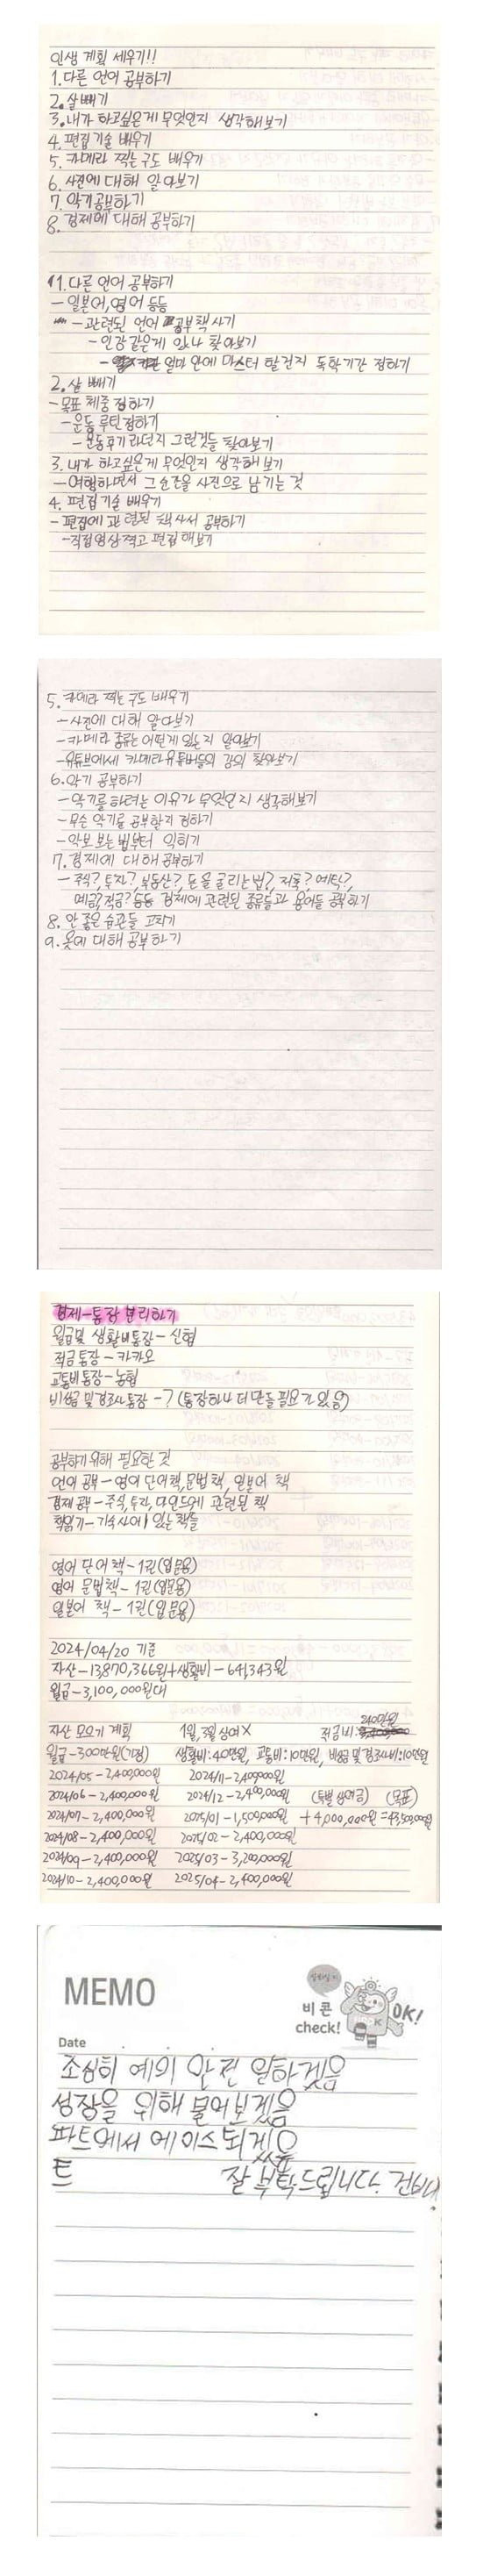 인생 계획 세우기!!
1. 다른 언어 공부하기
2. 살 빼기
3. 내가 하고싶은게 무엇인지 생각해보기
4. 편집 기술 배우기
5. 카메라 찍는 구도 배우기
6. 사진에 대해 알아보기
7. 악기 공부하기
8. 경제에 대해 공부하기
1. 다른 언어 공부하기
- 일본어, 영어 등등
- 관련된 언어 공부 책 사기
- 인강 같은게 있나 찾아보기
- 얼마 안에 마스터 할건지 독학기간 정하기
2. 살 빼기
- 목표 체중 정하기
- 운동 루틴 정하기
- 운동후기 라던지 그런것들 찾아보기
3. 내가 하고싶은게 무엇인지 생각해보기
- 여행하면서 그 순간을 사진으로 남기는 것
4. 편집 기술 배우기
- 편집에 관련된 책 사서 공부하기
- 직접 영상 찍고 편집 해보기
5. 카메라 찍는 구도 배우기
- 사진에 대해 알아보기
- 카메라 종류는 어떤게 있는지 알아보기
- 유튜브에서 카메라 유튜버들의 강의 찾아보기
6. 악기 공부하기
- 악기를 하려는 이유가 무엇인지 생각해보기
- 무슨 악기를 공부할지 정하기
- 악보 보는 법부터 익히기
7. 경제에 대해 공부하기
- 주식?, 투자?, 부동산?, 돈을 굴리는법?, 저축?, 예탁?,
예금?, 적금? 등등 경제에 관련된 종류들과 용어들 공부하기
8. 안 좋은 습관들 고치기
9. 옷에 대해 공부하기
경제-통장 분리하기
월급 및 생활비통장 - 신협
적금통장 - 카카오
교통비통장 - 농협
비상금 및 경조사 통장 - ? (통장하나 더 만들 필요가 있음)
공부하기 위해 필요한 것
언어 공부 - 영어 단어책, 문법 책, 일본어 책
경제 공부 - 주식, 투자, 마인드에 관련된 책
책읽기 - 기숙사에 있는 책들
영어 단어 책 - 1권 (입문용)
영어 문법책 - 1권 (입문용)
일본어 책 - 1권 (입문용)
2024/04/20 기준
자산 - 13,870,366원 + 생활비 - 641,343원
월급 - 3,100,000원대
자산 모으기 계획 1월, 3월 상여X 적금비: 240만원
월급 - 300만원(가정) 생활비: 40만원, 교통비: 10만원, 비상금 및 경조사비: 10만원
2024/05 - 2,400,000원 2024/11 - 2,400,000원
2024/06 - 2,400,000원 2024/12 - 2,400,000원 (특별 상여금) (목표)
2024/07 - 2,400,000원 2025/01 - 1,500,000원 + 4,000,000원 = 43,500,000원
2024/08 - 2,400,000원 2025/02 - 2,400,000원
2024/09 - 2,400,000원 2025/03 - 3,200,000원
2024/10 - 2,400,000원 2025/04 - 2,400,000원
MEMO
비콘
check!
OK!
Date
조심히 예의 안전 일하겠음
성장을 위해 물어보겠음
파트에서 에이스 되겠음
트 잘 부탁드립니다.